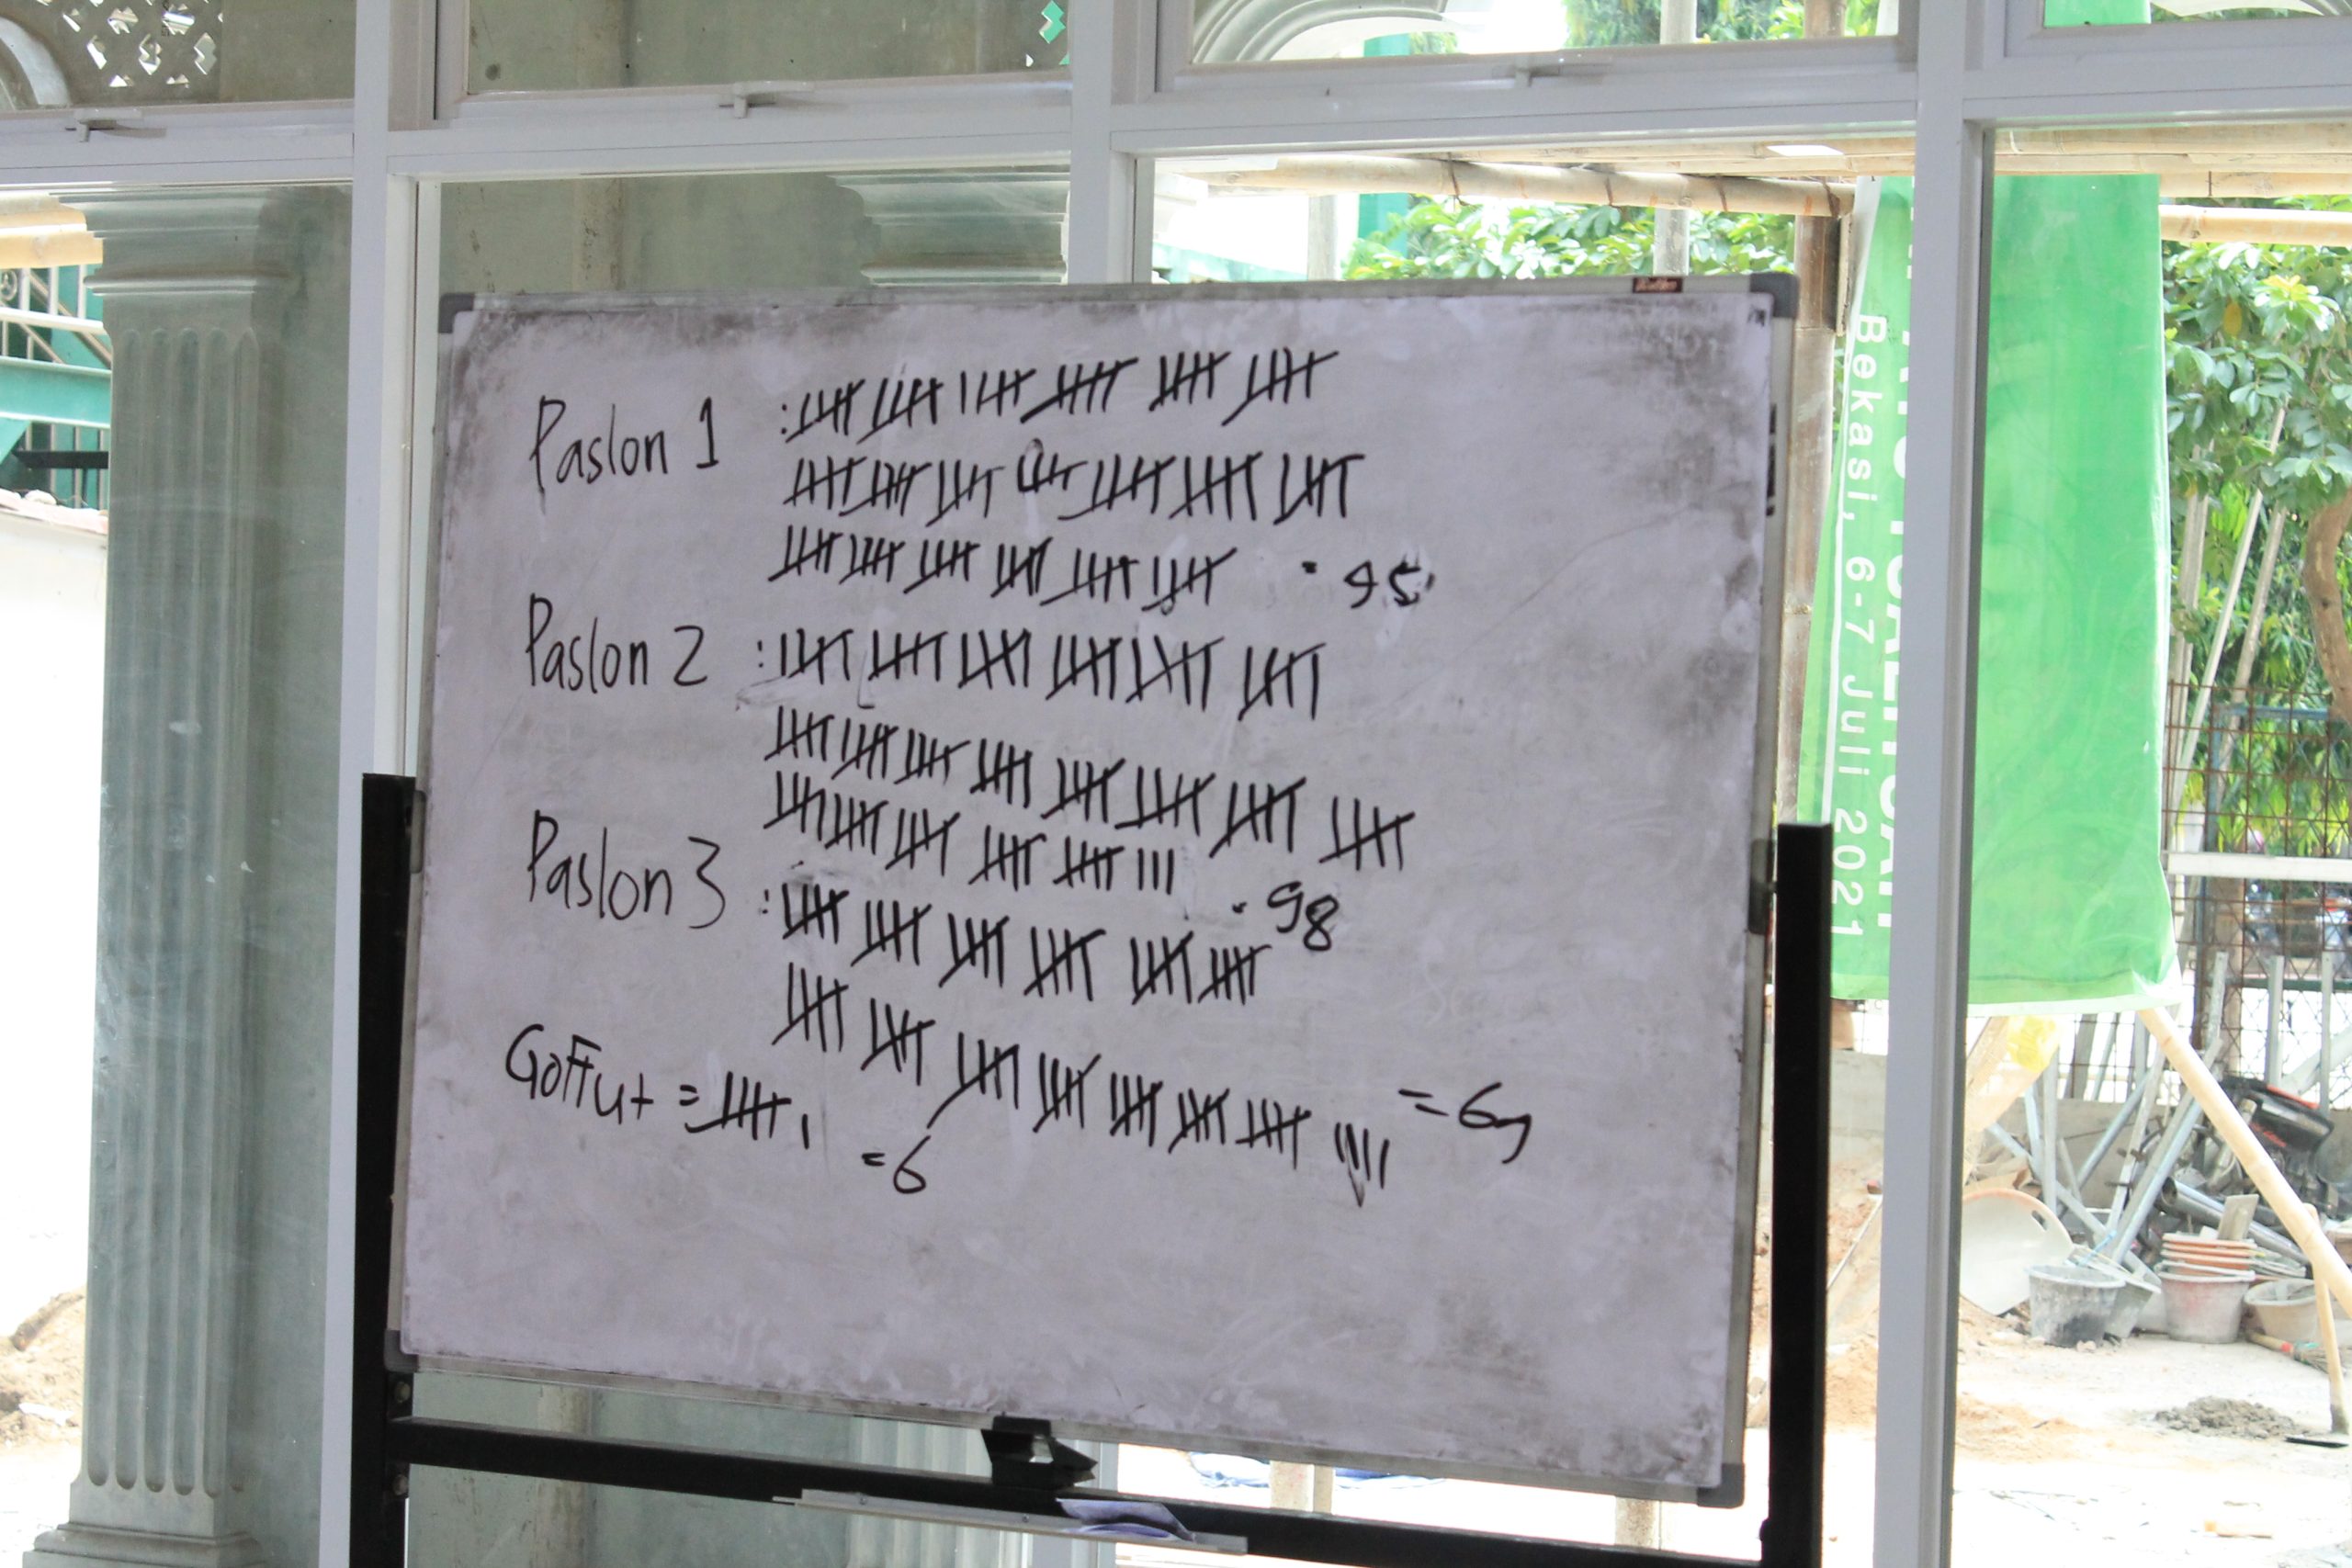 Paslon 1 :
= 95
Paslon 2 :
= 98
Paslon 3 :
= 69
GoFFut =
= 6
Bekasi, 6-7 Juli 2021